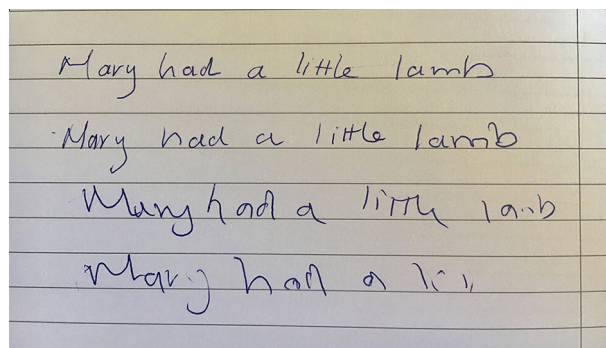 Mary had a little lamb
Mary had a little lamb
Mary had a little lamb
Mary had a li